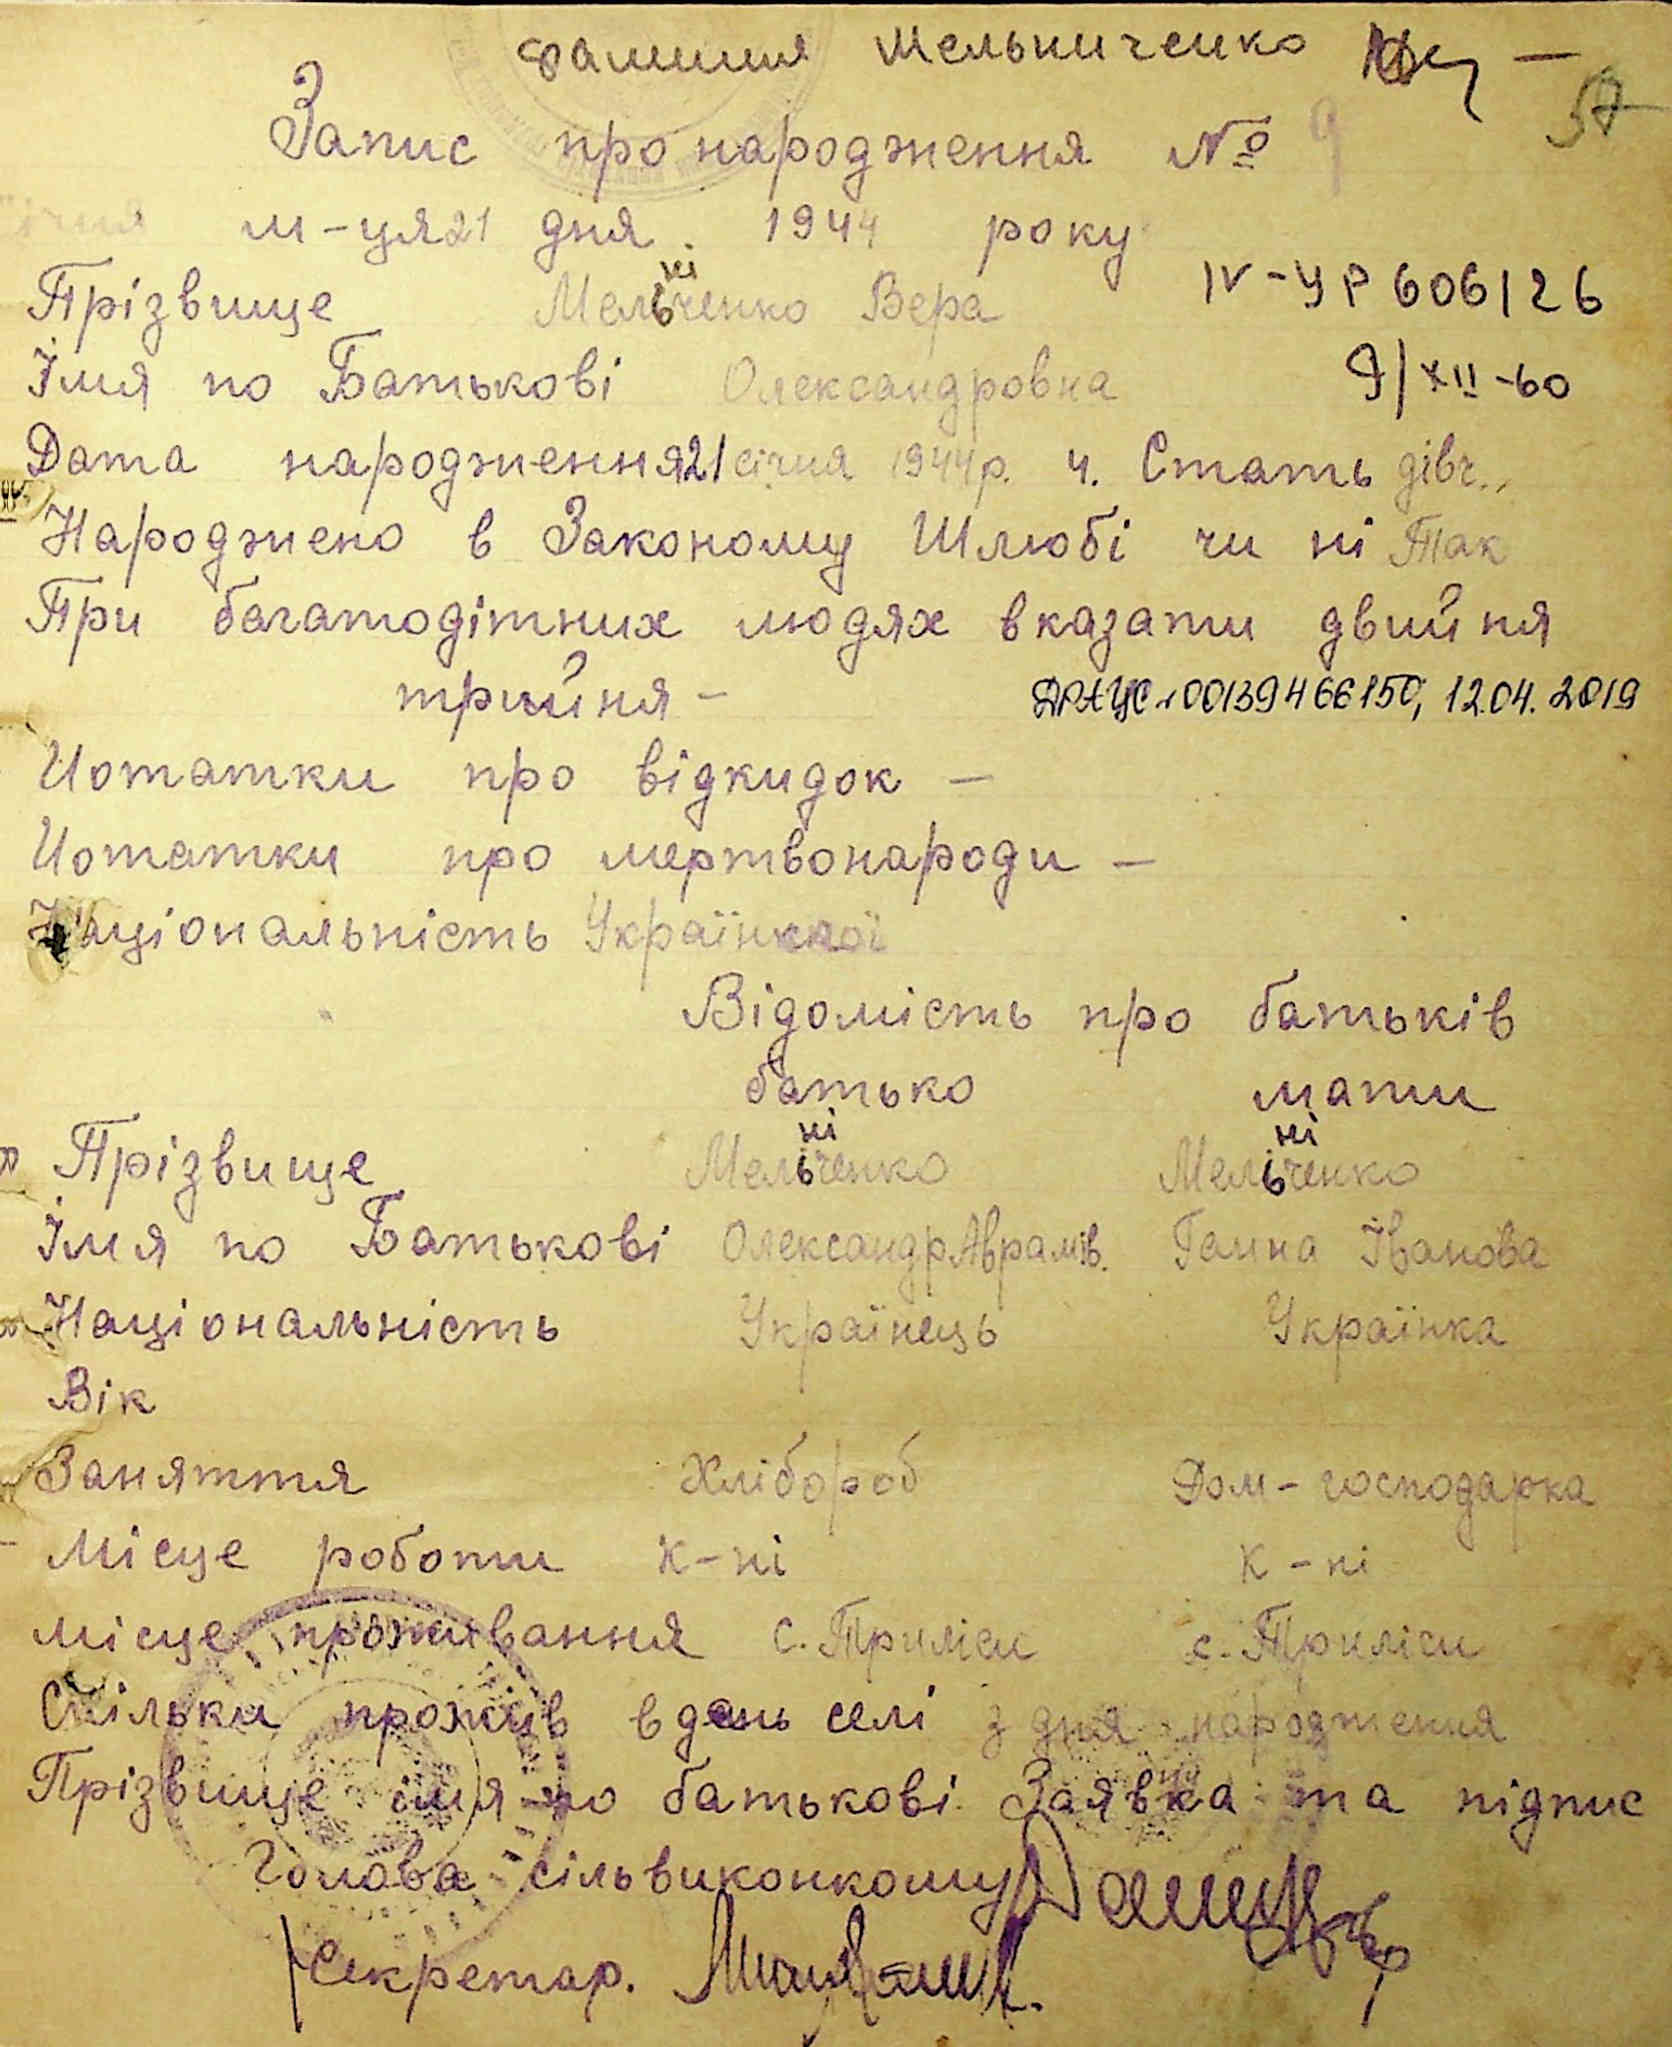 фамилия Мельниченко
57
Запис про народження № 9
січня м-ця 21 дня 1944 року
Прізвище Мельніченко Вера IV-УР 606126
Імя по Батькові Олександровна 9/XII-60
Дата народження 21 січня 1944 р. ч. Стать дівч.
Народжено в Законому Шлюбі чи ні Так
При багатодітних людях вказати двийня
трийня -
ДРАЦС 00139466150, 12.04.2019
Нотатки про відкидок -
Нотатки про мертвонароди -
Національність Українкої
Відомість про батьків
батько мати
Прізвище Мельніченко Мельніченко
Імя по Батькові Олександр Аврамів. Ганна Іванова
Національність Українець Українка
Вік
Заняття Хлібороб Дом-господарка
Місце роботи к-ні к-ні
місце проживання с. Триліси с. Триліси
Скільки прожив в дань селі з дня народження
Прізвище імя по батькові Заявка та підпис
Голова сільвиконкому
Секретар.